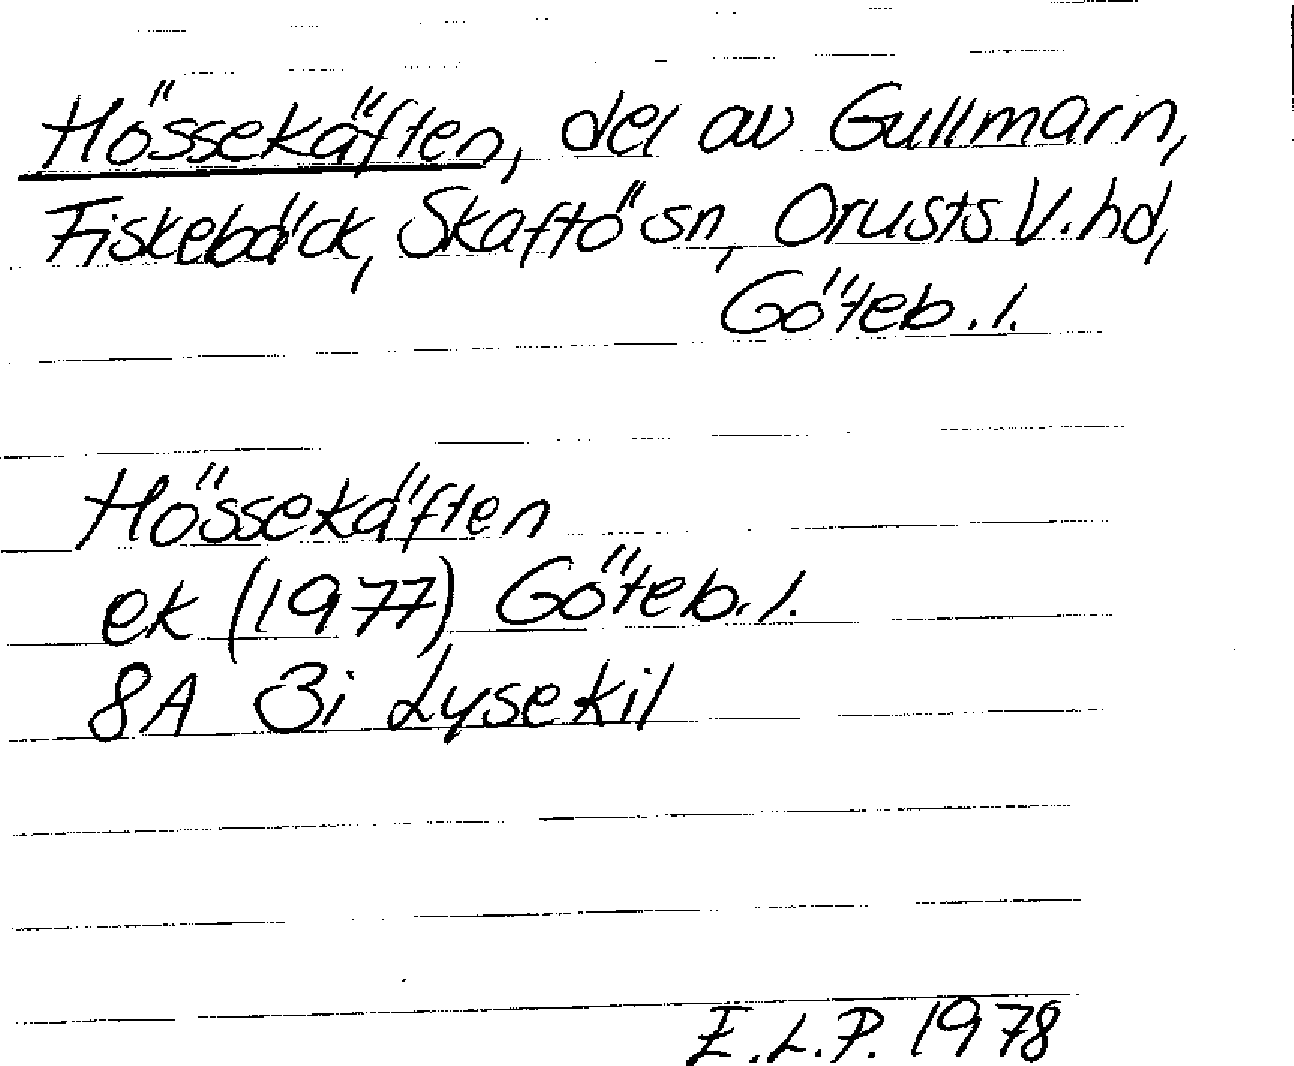 Hössekäften, del av Gullmarn,
Fiskebäck, Skaftö sn, Orusts V. hd,
Göteb. l.
Hössekäften
ek (1977) Göteb. l.
8A 3i Lysekil
E.L.P. 1978